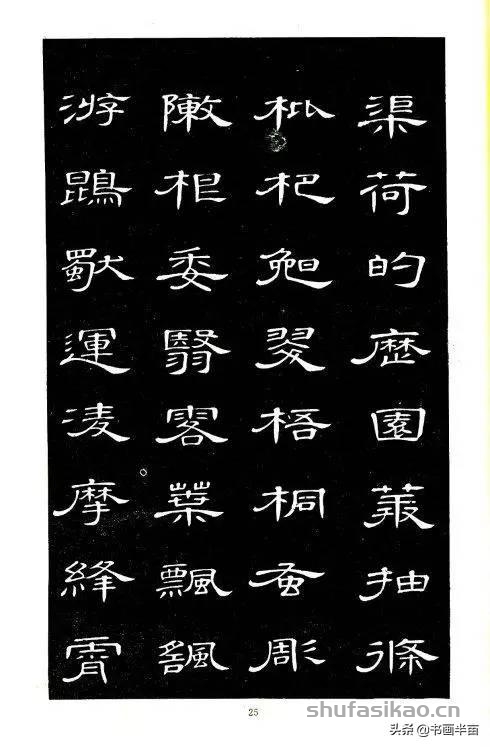 渠荷的歷園莽抽條
枇杷晚翠梧桐蚤彫
敶根委翳落葉飄颻
游鵾獨運凌摩絳霄
25
shufasikao.cn
头条 @书画半亩